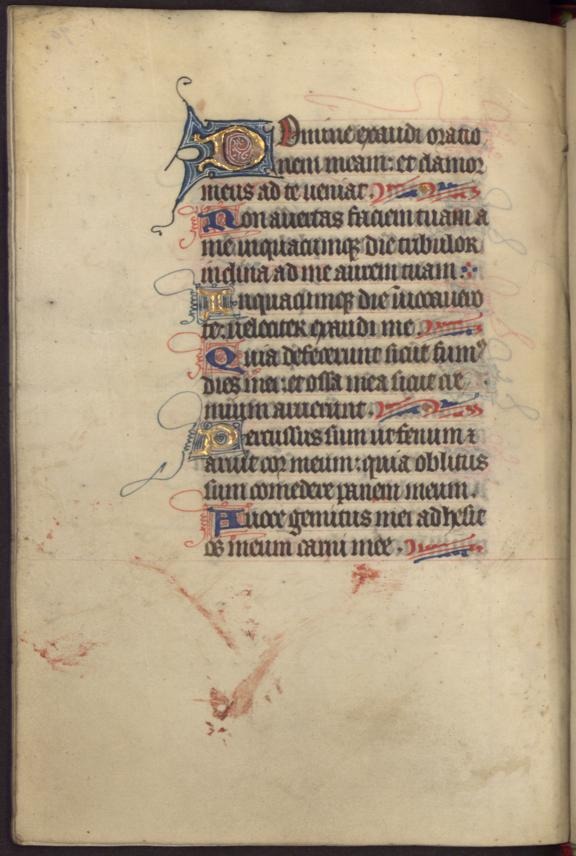 Domine exaudi oratio
nem meam: et clamor
meus ad te ueniat.
Non auertas faciem tuam a
me inquacumqꝫ die tribulor
inclina ad me aurem tuam:
Inquacumqꝫ die inuocauero
te: uelociter exaudi me.
Quia defecerunt sicut fumꝰ
dies mei: et ossa mea sicut cre
mium aruerunt.
Percussus sum ut fenum ⁊
aruit cor meum: quia oblitus
sum comedere panem meum.
A uoce gemitus mei adhesit
os meum carni mee.